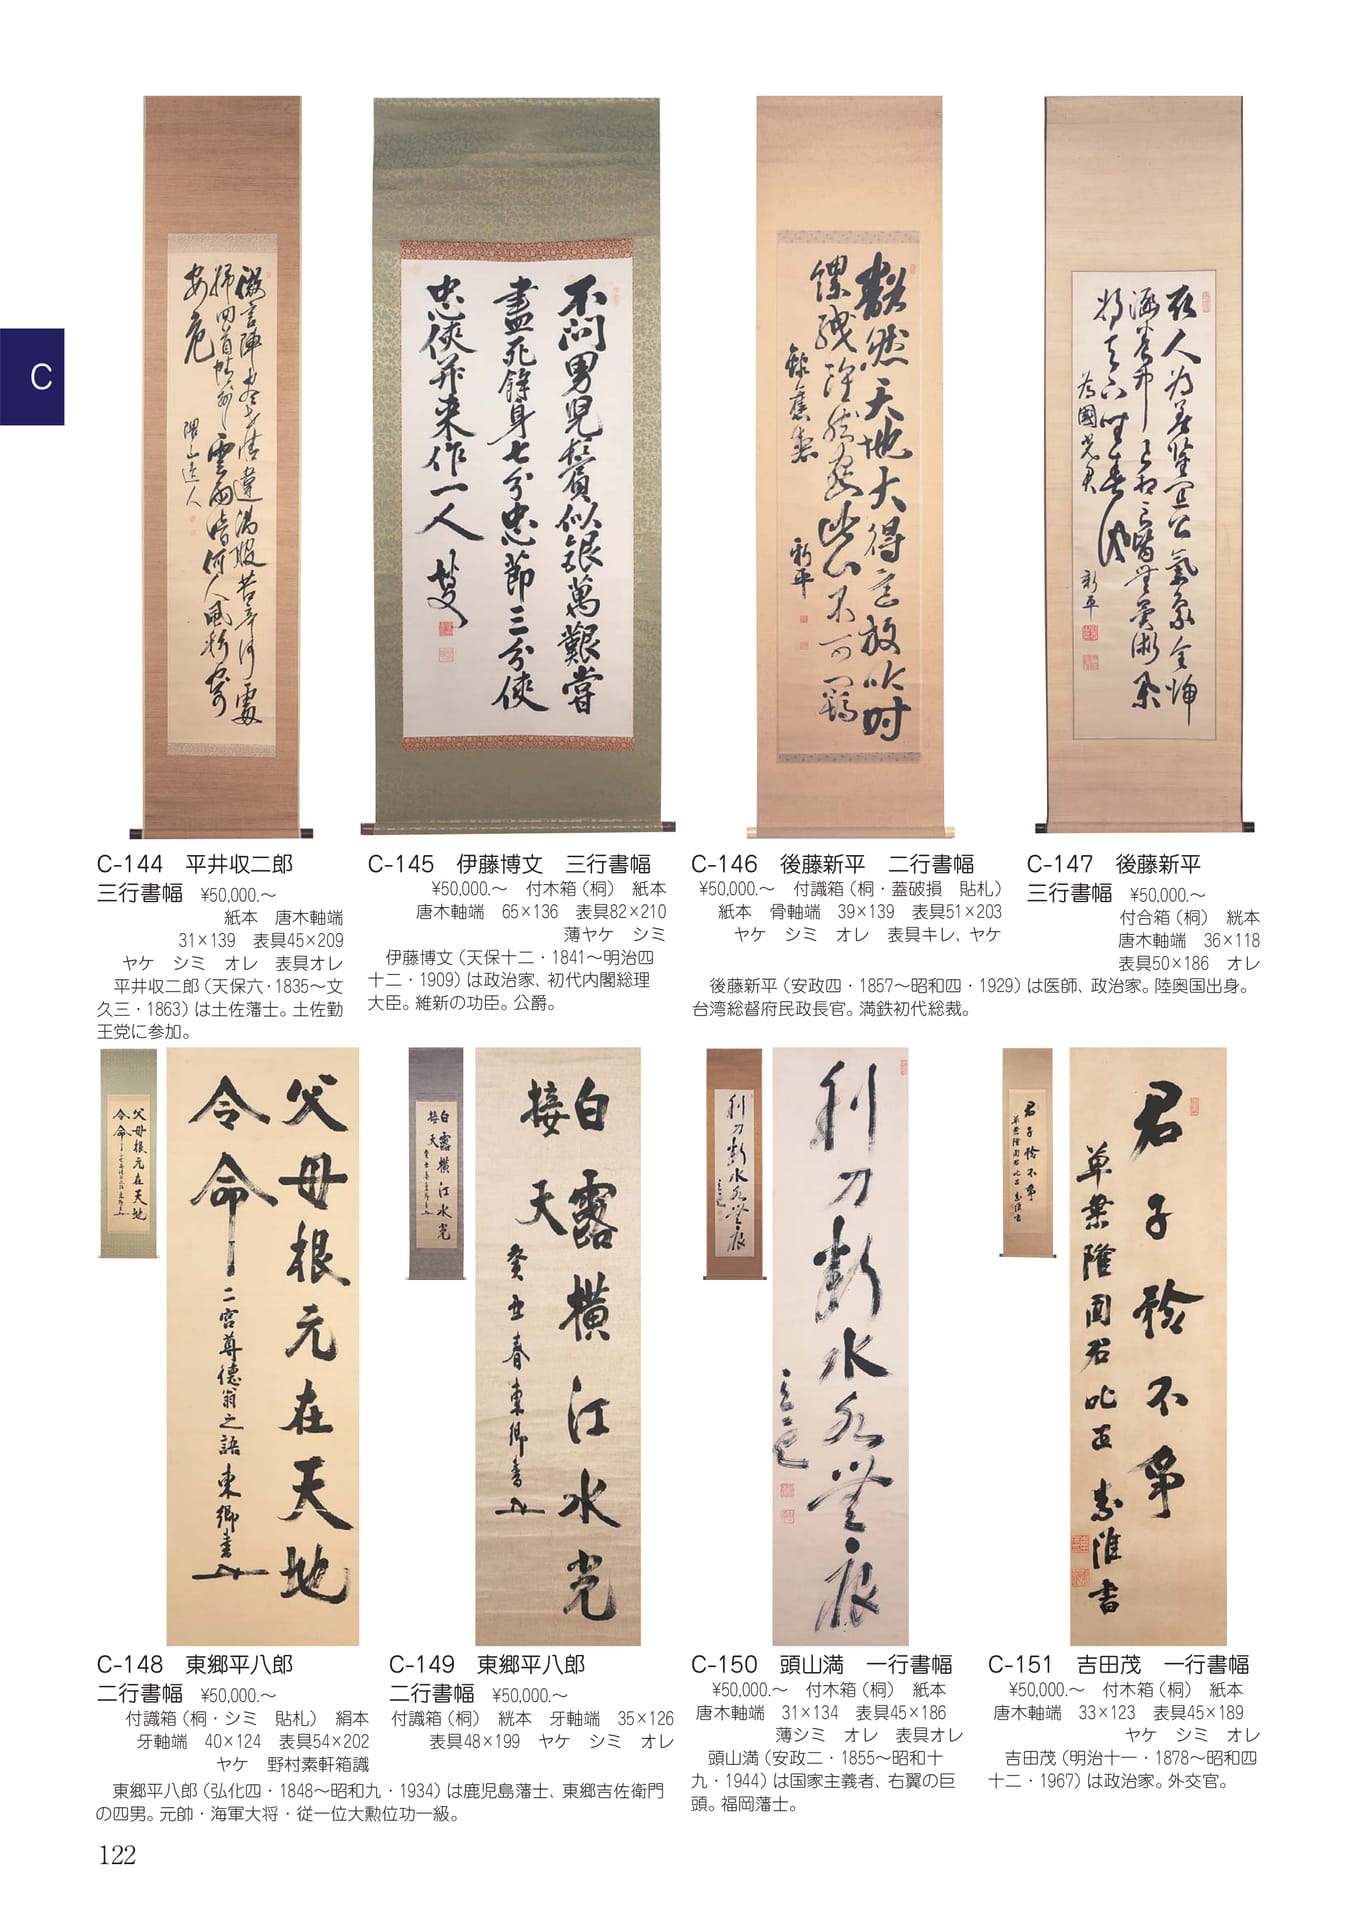 C
不問男児鬢似銀萬艱嘗
盡死餘身七分忠節三分侠
忠侠并来作一人
C-144　平井収二郎
三行書幅　¥50,000.〜
紙本　唐木軸端
31×139　表具45×209
ヤケ　シミ　オレ　表具オレ
平井収二郎（天保六・1835〜文
久三・1863）は土佐藩士。土佐勤
王党に参加。
C-145　伊藤博文　三行書幅
¥50,000.〜　付木箱（桐）　紙本
唐木軸端　65×136　表具82×210
薄ヤケ　シミ
伊藤博文（天保十二・1841〜明治四
十二・1909）は政治家、初代内閣総理
大臣。維新の功臣。公爵。
C-146　後藤新平　二行書幅
¥50,000.〜　付識箱（桐・蓋破損　貼札）
紙本　骨軸端　39×139　表具51×203
ヤケ　シミ　オレ　表具キレ、ヤケ
C-147　後藤新平
三行書幅　¥50,000.〜
付合箱（桐）　絖本
唐木軸端　36×118
表具50×186　オレ
後藤新平（安政四・1857〜昭和四・1929）は医師、政治家。陸奥国出身。
台湾総督府民政長官。満鉄初代総裁。
父母根元在天地
令命
二宮尊徳翁之語　東郷書
白露横江水光
接天
癸丑春東郷書
利刀断水水無痕
君子矜不争
C-148　東郷平八郎
二行書幅　¥50,000.〜
付識箱（桐・シミ　貼札）　絹本
牙軸端　40×124　表具54×202
ヤケ　野村素軒箱識
C-149　東郷平八郎
二行書幅　¥50,000.〜
付識箱（桐）　絖本　牙軸端　35×126
表具48×199　ヤケ　シミ　オレ
東郷平八郎（弘化四・1848〜昭和九・1934）は鹿児島藩士、東郷吉佐衛門
の四男。元帥・海軍大将・従一位大勲位功一級。
C-150　頭山満　一行書幅
¥50,000.〜　付木箱（桐）　紙本
唐木軸端　31×134　表具45×186
薄シミ　オレ　表具オレ
頭山満（安政二・1855〜昭和十
九・1944）は国家主義者、右翼の巨
頭。福岡藩士。
C-151　吉田茂　一行書幅
¥50,000.〜　付木箱（桐）　紙本
唐木軸端　33×123　表具45×189
ヤケ　シミ　オレ
吉田茂（明治十一・1878〜昭和四
十二・1967）は政治家。外交官。
122